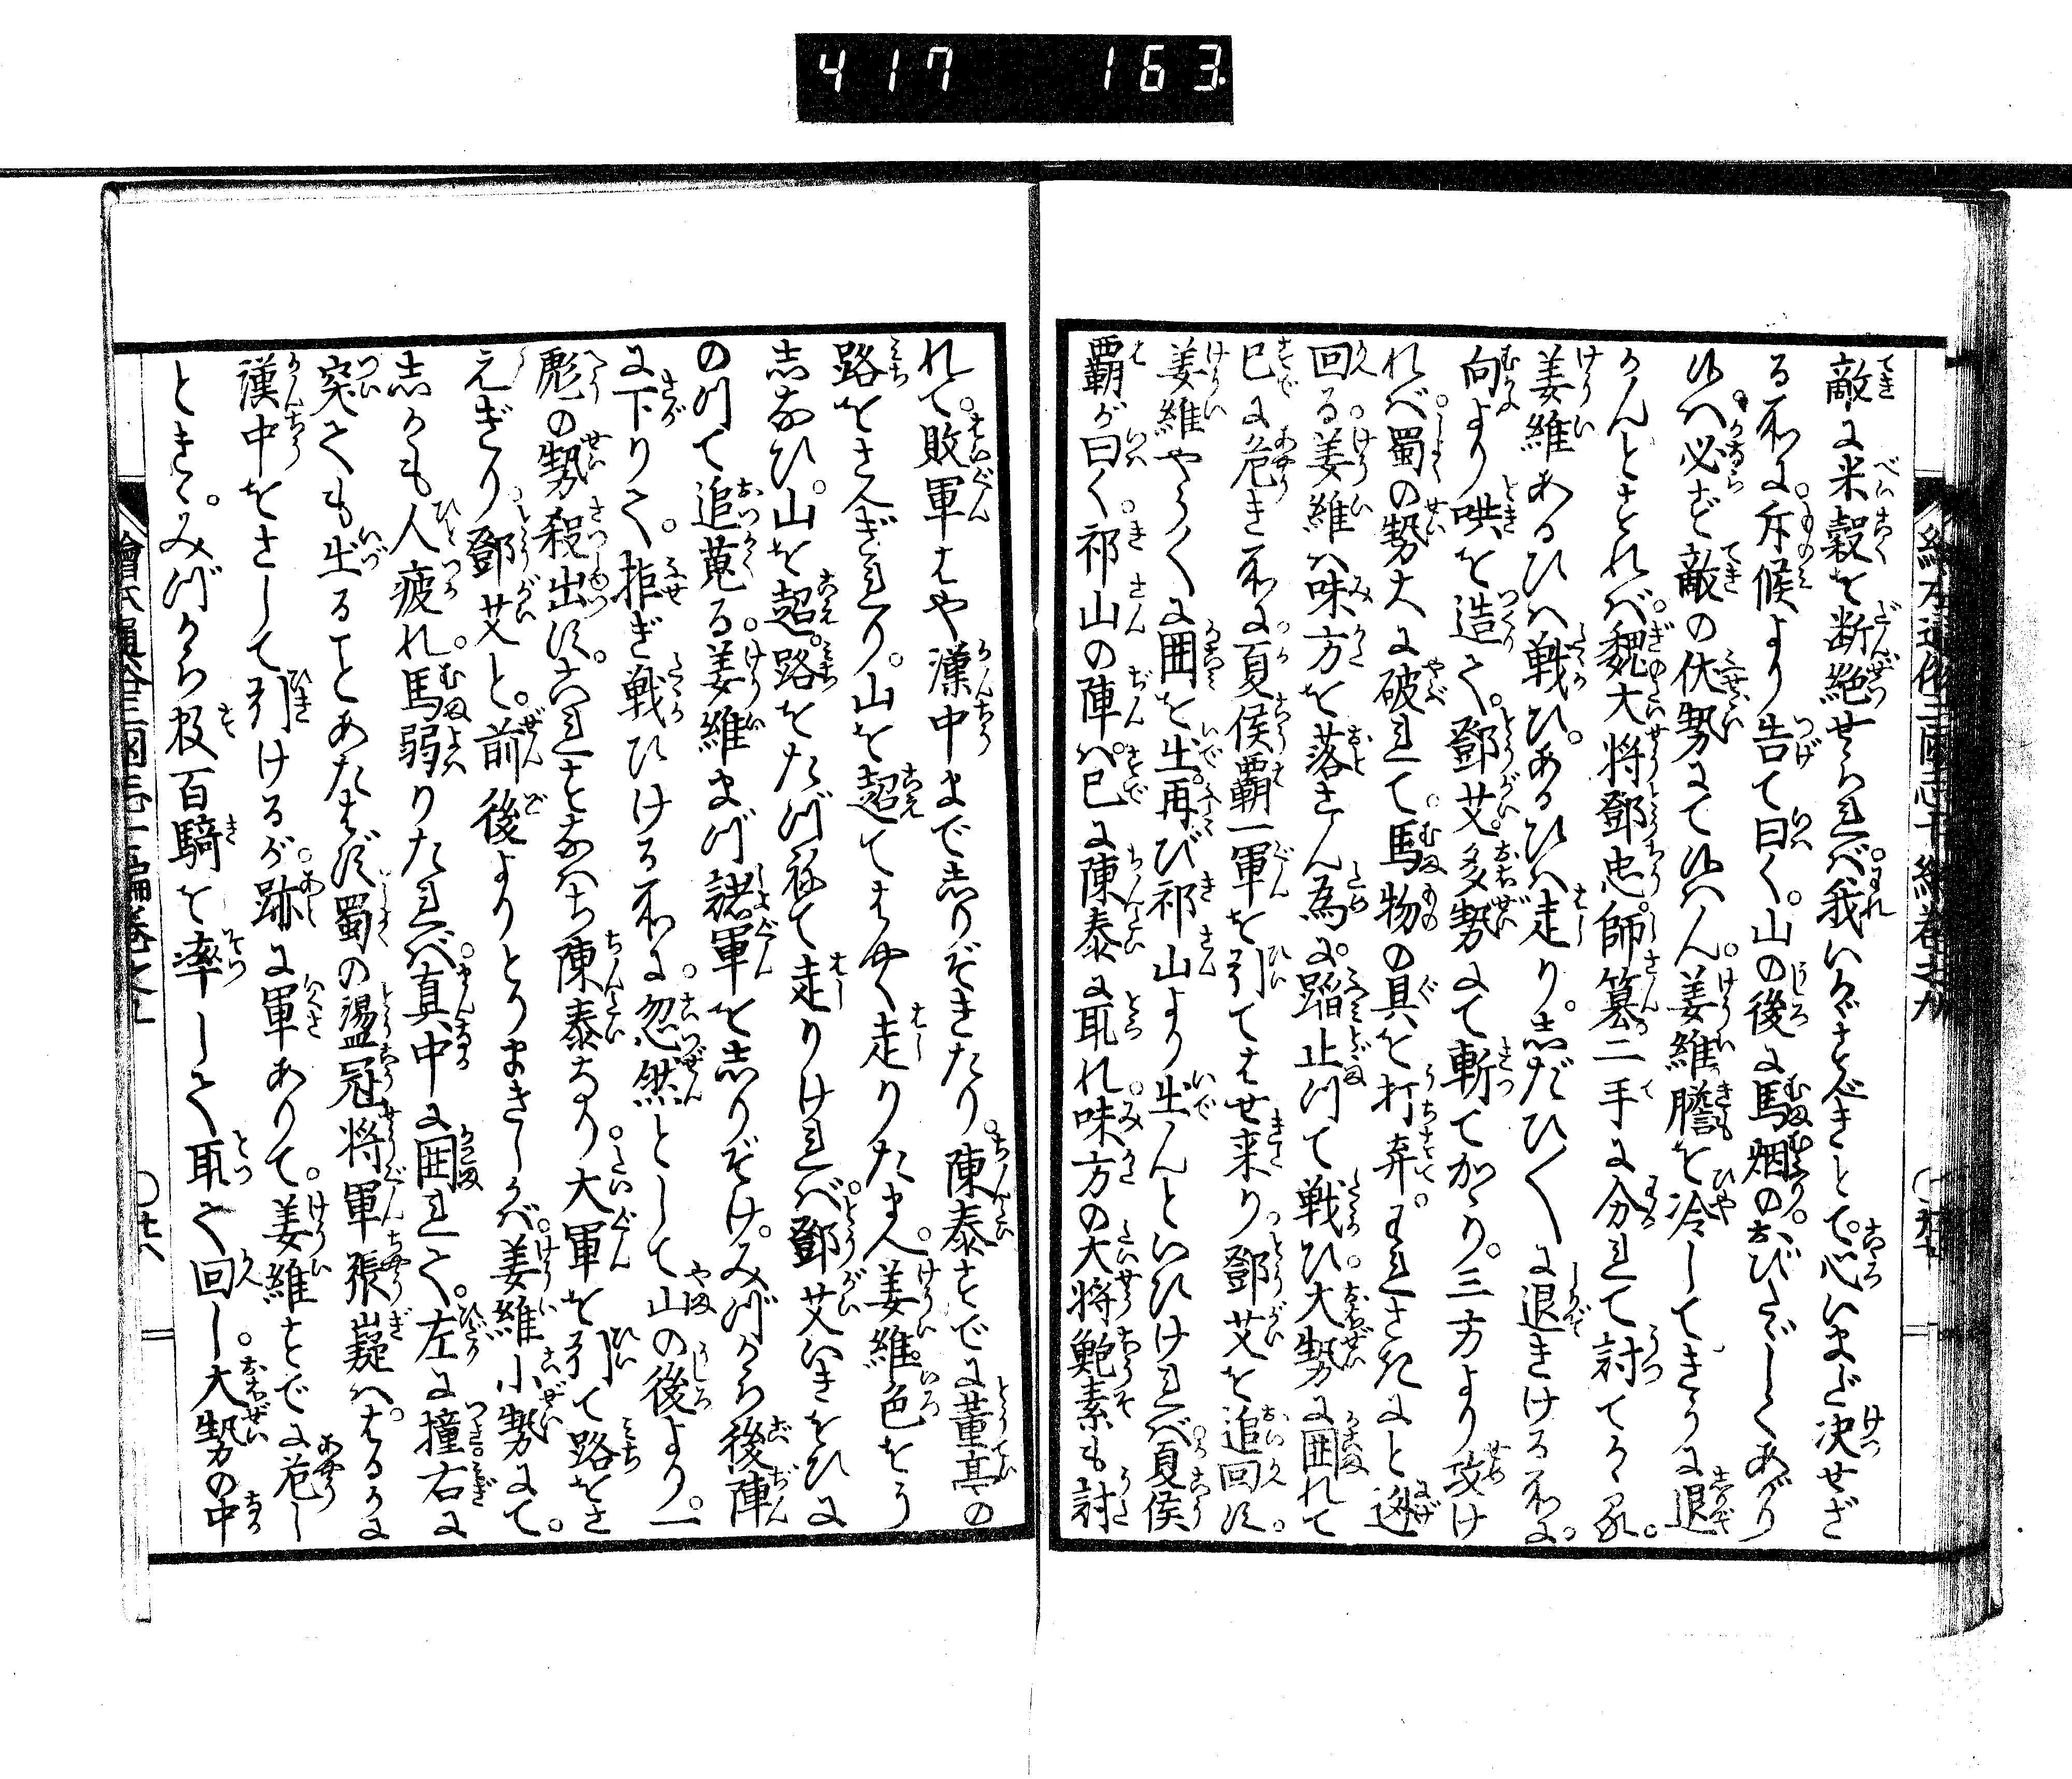 417 163
敵に米穀を断絶せられば。我いかゞすべきとて。心いまだ決せざ
る所に。斥候より告て曰く。山の後に馬烟のおびたゞしくあがり
候へ。必ず敵の伏勢にて候はん。姜維膽を冷してきうに退
かんとすれば。魏大将鄧忠。師纂二手に分れて討てかゝる。
姜維あるひハ戦ひ。あるひハ走り。志だひ〱に退きける所に。
向より哄を造て。鄧艾。多勢にて斬てかゝり。三方より攻け
れバ。蜀の勢大に破れて。馬物の具を打弃。われさきにと迯
回る。姜維ハ味方を落さん為に。蹈止つて戦ひ。大勢に囲れて
已に危き所に。夏侯覇一軍を引てはせ来り。鄧艾を追回す。
姜維やう〱に囲を出。再び祁山より出んといひけれバ。夏侯
覇が曰く。祁山の陣ハ。已に陳泰に取れ。味方の大将鮑素も討
れて。敗軍はや漢中まで志りぞきたり。陳泰すでに董亭の
路をさへぎれり。山を超てはやく走りたまへ。姜維。色をう
志なひ。山を超。路をたづねて走りけれバ。鄧艾いきをひに
のつて追蒐る。姜維まづ諸軍を志りぞけ。みづから後陣
に下りて。拒ぎ戦ひける所に。忽然として山の後より。一
彪の勢殺出す。これすなハち陳泰なり。大軍を引て路をさ
えぎり。鄧艾と。前後よりとりまきしかバ。姜維小勢にて。
志かも人疲れ。馬弱りたれバ。真中に囲れて。左に撞右に
突ても出ることあたはず。蜀の盪冦将軍張嶷ハ。はるかに
漢中をさして引けるが。跡に軍ありて。姜維すでに危し
とき。みづから数百騎を率して取て回し。大勢の中